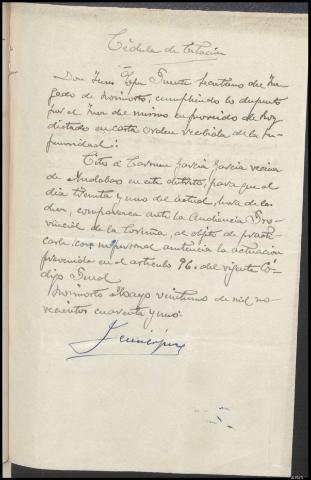 Cédula de Citación
Don Jesús López Puente Secretario del Juz-
gado de Boimorto, cumpliendo lo dispuesto
por el Juez del mismo en proveido de hoy
dictado en carta orden recibida de la Su-
perioridad:
Cito a Carmen García García vecina
de Andabao en este distrito, para que el
dia treinta y uno del actual, hora de las
diez, comparezca ante la Audiencia Pro-
vincial de la Coruña, al objeto de practi-
carle, con su personal asistencia la actuación
prevenida en el articulo 96 del vigente Có-
digo Penal
Boimorto Mayo veintiuno de mil no-
vecientos cuarenta y uno.